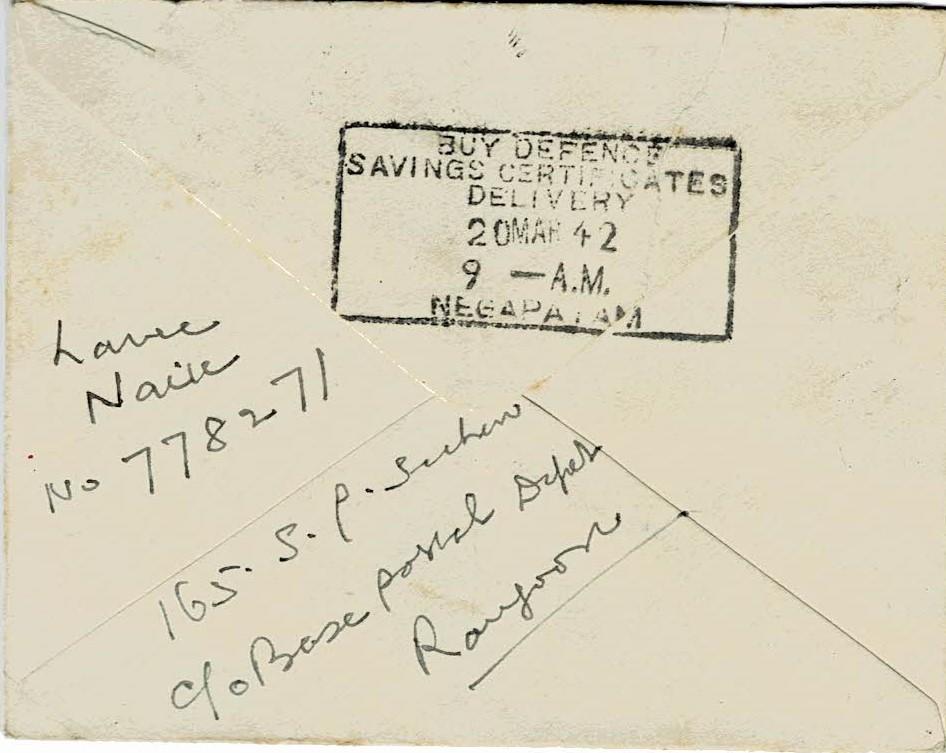 BUY DEFENCE
SAVINGS CERTIFICATES
DELIVERY
20 MAR 42
9 — A.M.
NEGAPATAM
Lance
Naik
No 778271
165. S. P. Section
c/o Base Postal Depot
Rangoon